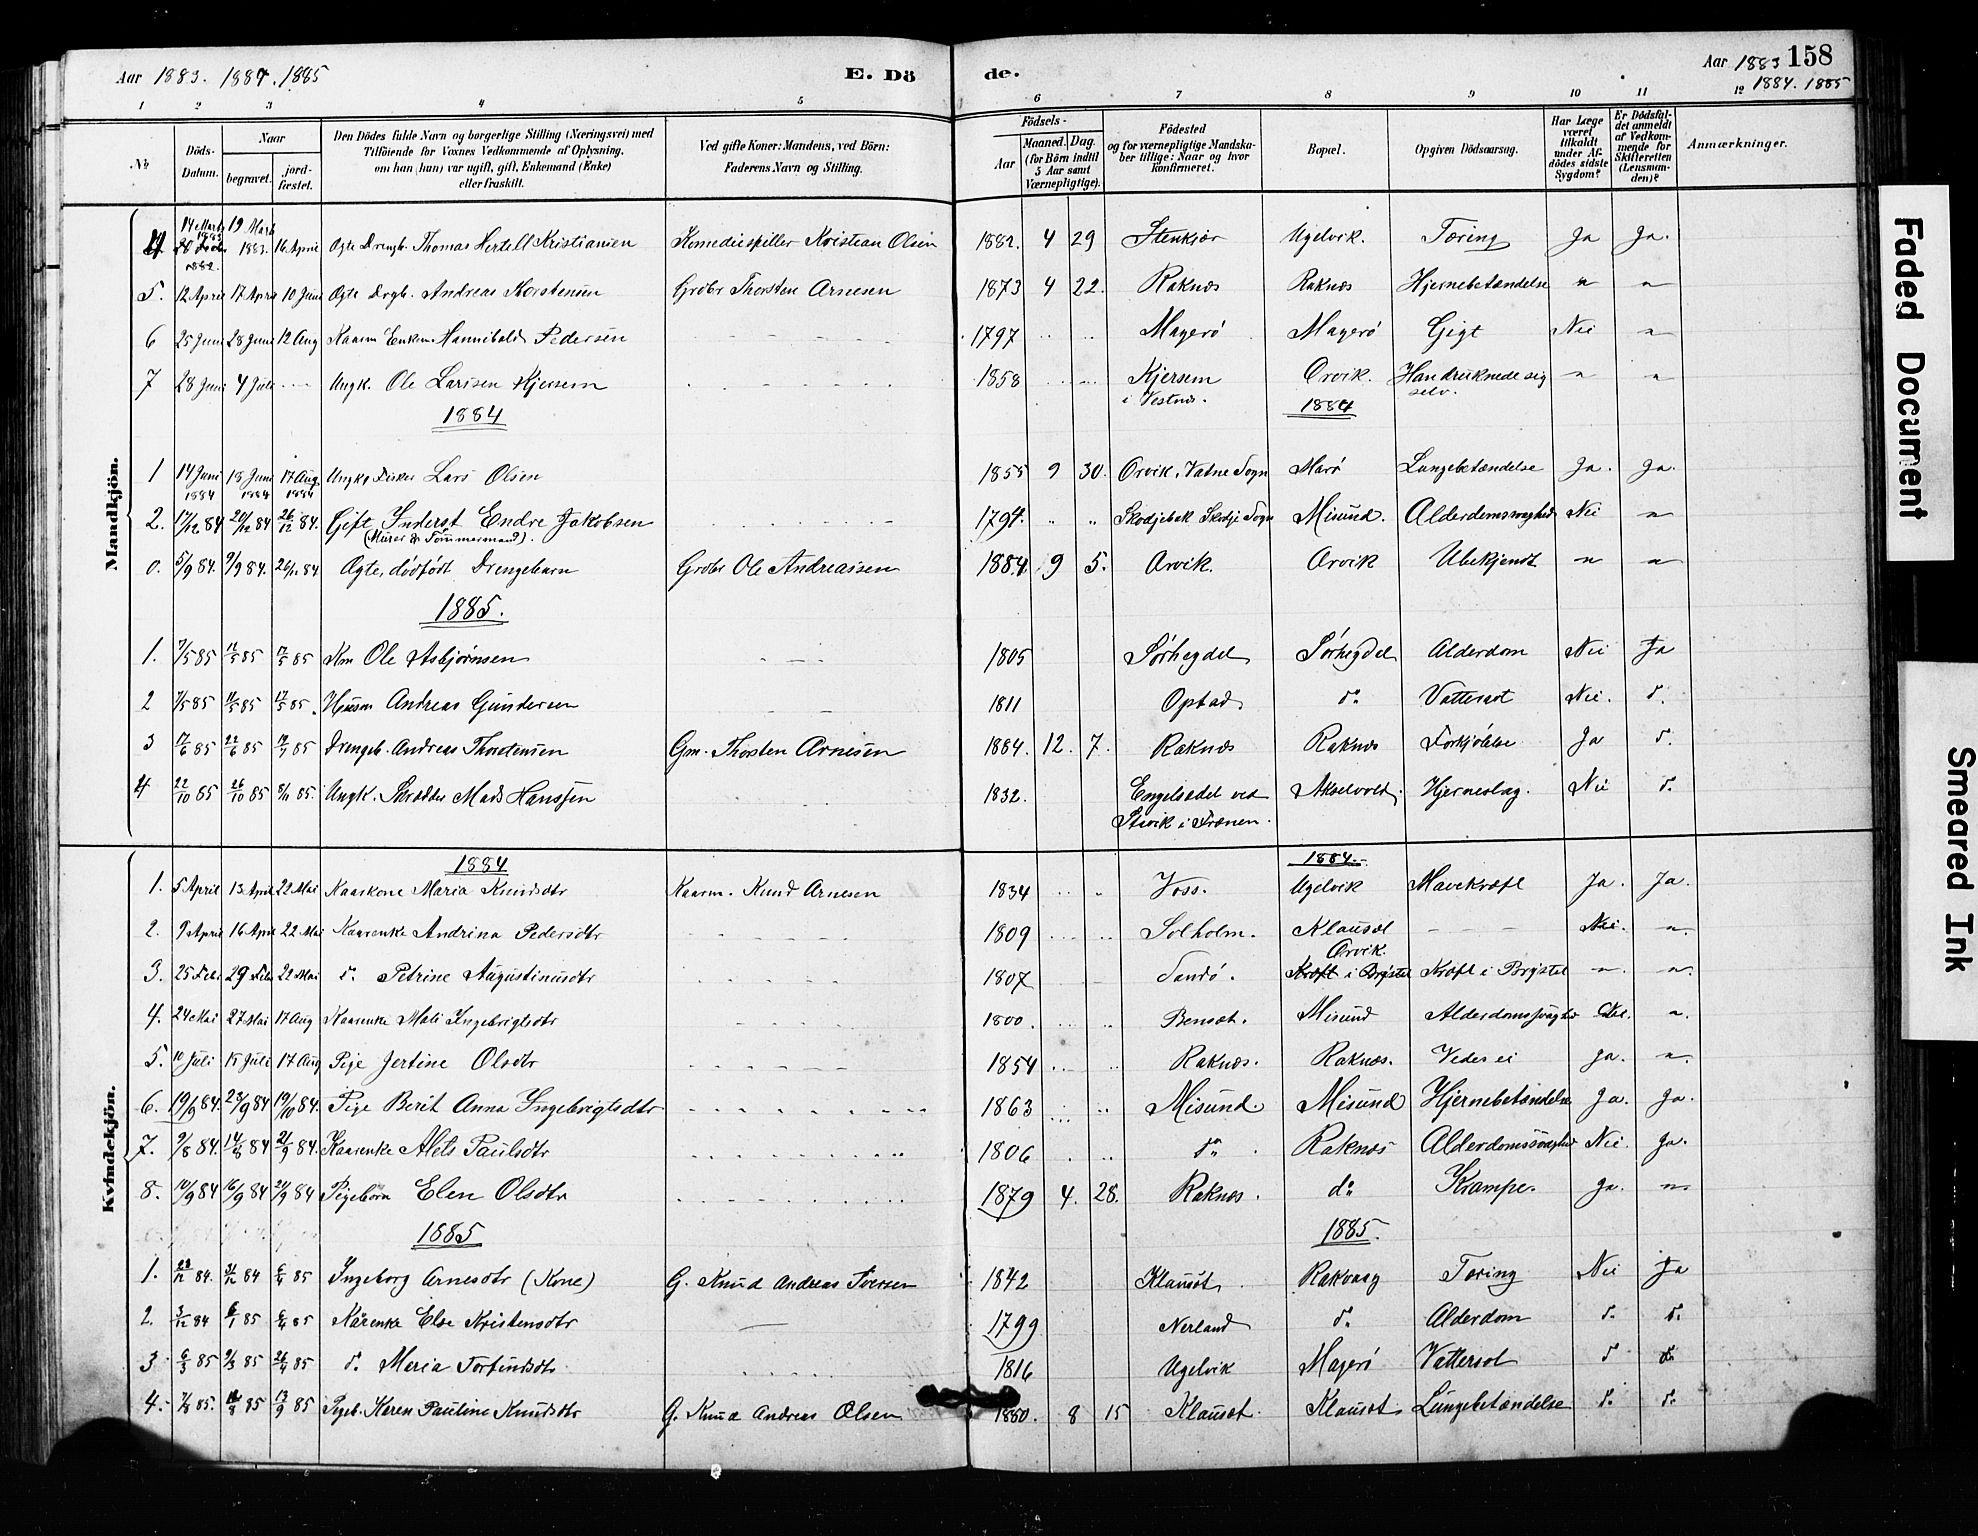 Aar 1883. 1884. 1885 E. Dö de. Aar 1883 158
1884. 1885
1 2 3 4 5 6 7 8 9 10 11 12
No Döds-Datum. Naar begravet. jord-fæstet. Den Dödes fulde Navn og borgerlige Stilling (Næringsvei) med Tilföiende for Voxnes Vedkommende af Oplysning, om han (hun) var ugift, gift, Enkemand (Enke) eller fraskilt. Ved gifte Koner: Mandens, ved Börn: Faderens Navn og Stilling. Födsels- Aar Maaned. Dag. (for Börn indtil 5 Aar samt Værnepligtige). Födested og for værnepligtige Mandskaber tillige: Naar og hvor konfirmeret. Bopæl. Opgiven Dödsaarsag. Har Læge været tilkaldt under Afdödes sidste Sygdom? Er Dödsfaldet anmeldt af Vedkommende for Skifteretten (Lensmanden)? Anmærkninger.
Mandkjön.
4. 14 Marts 1883 19 Marts 1883. 16 April Ægte Drengb. Thomas Hertell Kristiansen Komediespiller Kristian Olsen 1882. 4 29 Stenkjær Ugelvik. Tæring Ja Ja.
5. 12 April 17 April 10 Juni Ægte Drgb. Andreas Thorstensen Grdbr Thorsten Arnesen 1873 4 22. Raknæs Raknæs Hjernebetændelse " "
6 25 Juni 28 Juni 12 Aug Kaarm Enkem. Hannibald Pedersen 1797 Magerö Magerö Gigt Nei "
7 28 Juni 4 Juli Ungk. Ole Larsen Kjersem 1858 Kjersem i Vestnes. Orvik. Han druknede sig selv. " "
1884 1884
1 14 Juni 1884 18 Juni 1884 17 Aug 1884 Ungk. Fisker Lars Olsen 1855 9 30. Orvik, Vatne Sogn Marö Lungebetændelse Ja. Ja.
2. 17/12 84 20/12 84 26/12 84. Gift Inderst Endre Jakobsen (Murer & Tömmermand). 1794. " " Skodjebak Skodje Sogn Misund. Alderdomssvaghed Nei "
0. 5/9 84. 9/9 84. 26/12 84 Ægte, dödfödt Drengebarn Grdbr Ole Andreassen 1884 9 5. Orvik. Orvik Ubekjendt " "
1885.
1. 7/5 85 17/5 85 17/5 85 Km Ole Asbjørnsen 1805 Sörhegdel Sörhegdel Alderdom Nei Ja
2 7/5 85 11/5 85 17/5 85. Husm Andreas Gundersen 1811 Opstad do Vattersot Nei. do
3 17/6 85 22/6 85 19/7 85 Drengeb. Andreas Thorstensen Gm. Thorsten Arnesen 1884. 12. 7. Raknæs Raknæs Forkjölelse Ja do
4 22/10 85 26/10 85 8/11 85. Ungk. Skrædder Mads Hanssen 1832. Engelsædel ved Stavik i Frænen. Akselvold. Hjerneslag. Nei do
Kvindekjön.
1884 1884.
1. 5 April 13 April 22 Mai Kaarkone Maria Knudsdtr Kaarm. Knud Arnesen 1834 Voss. Ugelvik Mavekræft Ja. Ja.
2. 9 April 16 April 22 Mai Kaarenke Andrina Pedersdtr 1809 Solholm. Klauset Nei. "
3. 25 Feb. 29 Feb 22 Mai do Petrine Augustinusdtr 1807 Sandö. Orvik. Kræft i Brystet Kræft i Brystet " "
4. 24 Mai 27 Mai 17 Aug Kaarenke Mali Ingebrigtsdtr 1800. Bensæt. Misund Alderdomssvaghd Nei. "
5. 10 Juli 15 Juli 17 Aug Pige Jertine Olsdtr 1854 Raknæs. Raknæs. Vedes ei Ja. "
6. 19/9 84. 23/9 84 19/10 84. Pige Berit Anna Ingebrigtsdtr 1863 Misund. Misund Hjernebetændelse Ja. Ja.
7. 9/8 84. 14/8 84 21/9 84. Kaarenke Alets Paulsdtr 1806 do Raknæs Alderdomssvaghed Nei. Ja.
8. 10/9 84 16/9 84 21/9 84 Pigebarn Elen Olsdtr 1879 4. 28. Raknæs. do Krampe. Ja. "
1885 1885.
1. 28/12 84. 31/12 84 6/4 85 Ingeborg Arnesdtr (Kone) G. Knud Andreas Iversen 1842 Klauset Rakvaag Tæring Nei Ja
2. 3/12 84 6/1 85 6/4 85 Kårenke Else Kristensdtr 1799 Nerland do Alderdom do do
3. 6/3 85 9/3 85 26/4 85 do Maria Torfindsdtr. 1816 Ugelvik Magerö Vattersot do do
4. 7/8 85. 12/8 85 13/9 85 Pigeb. Karen Pauline Knudsdtr G. Knud Andreas Olsen 1880. 8 15 Klauset Klauset Lungebetændelse do do
Faded Document
Smeared Ink